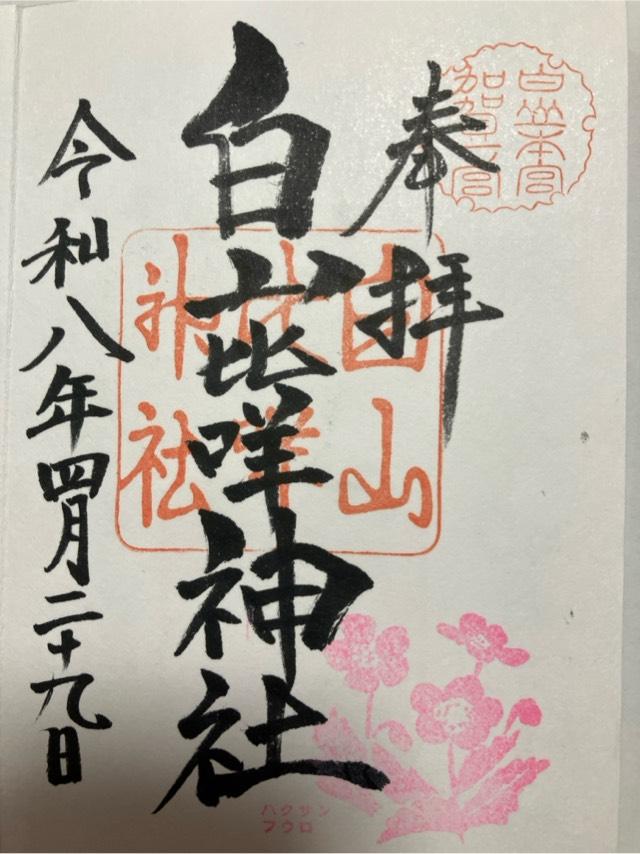 白山本宮
加賀一宮
奉拝
白山比咩神社
白山
比咩
神社
令和八年四月二十九日
ハクサン
フウロ